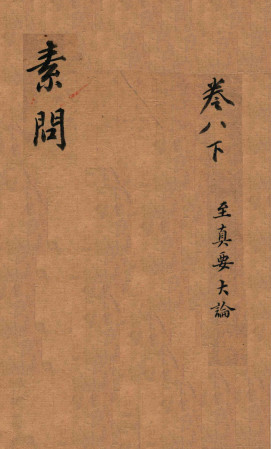 素問
卷八下
至真要大論